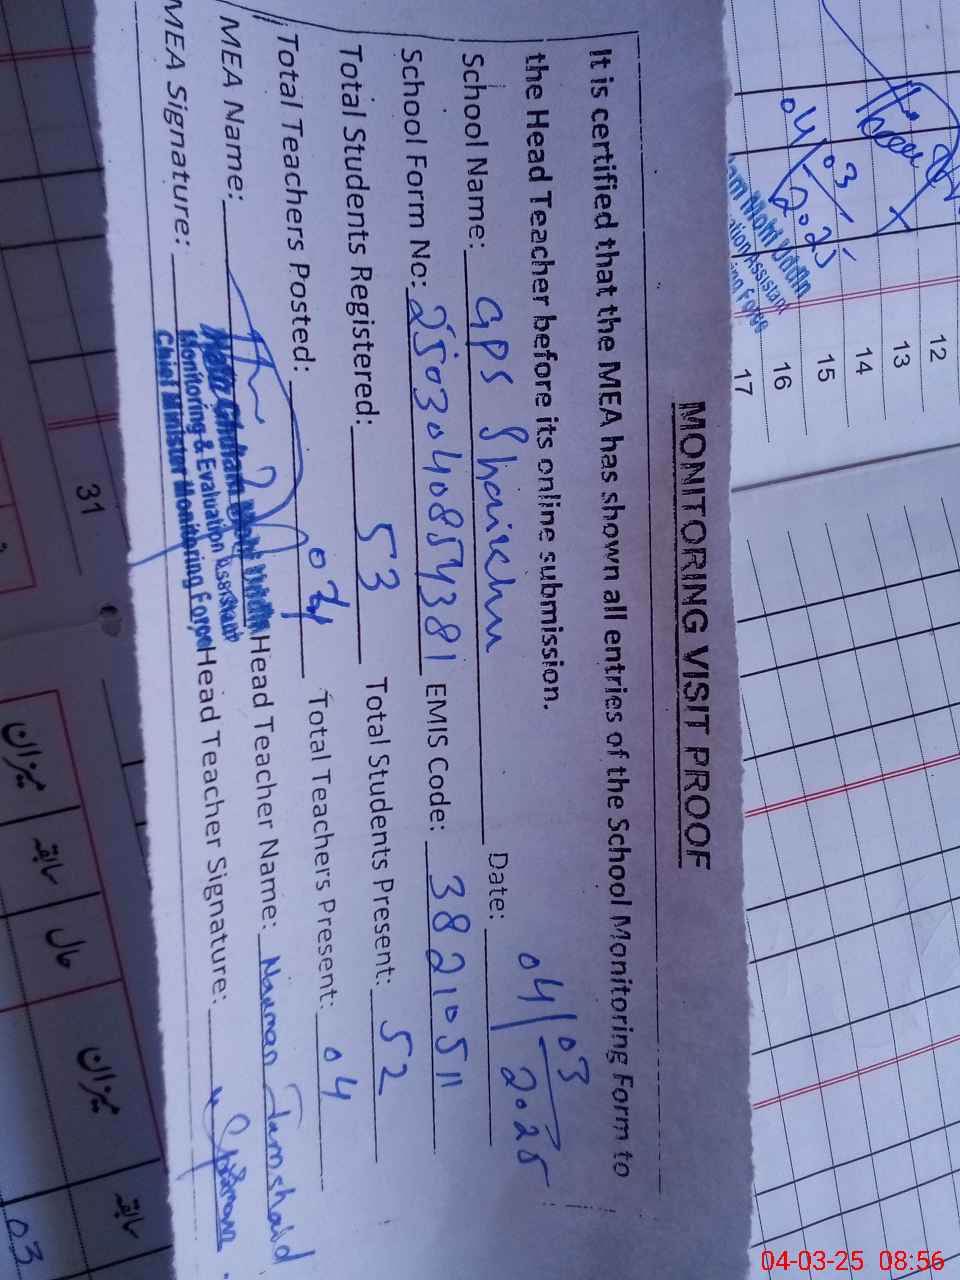 MONITORING VISIT PROOF
It is certified that the MEA has shown all entries of the School Monitoring Form to
the Head Teacher before its online submission.
School Name: GPS Shaikhu Date: 04/03/2025
School Form No: 2503040854381 EMIS Code: 38210511
Total Students Registered: 53 Total Students Present: 52
Total Teachers Posted: 04 Total Teachers Present: 04
MEA Name: Head Teacher Name: Nauman Jamshaid
MEA Signature: Head Teacher Signature:
Monitoring & Evaluation Assistant
Chief Minister Monitoring Force
04/03/2025
12
13
14
15
16
17
31
میزان
سابقہ
حال
میزان
سابقہ
03
04-03-25 08:56